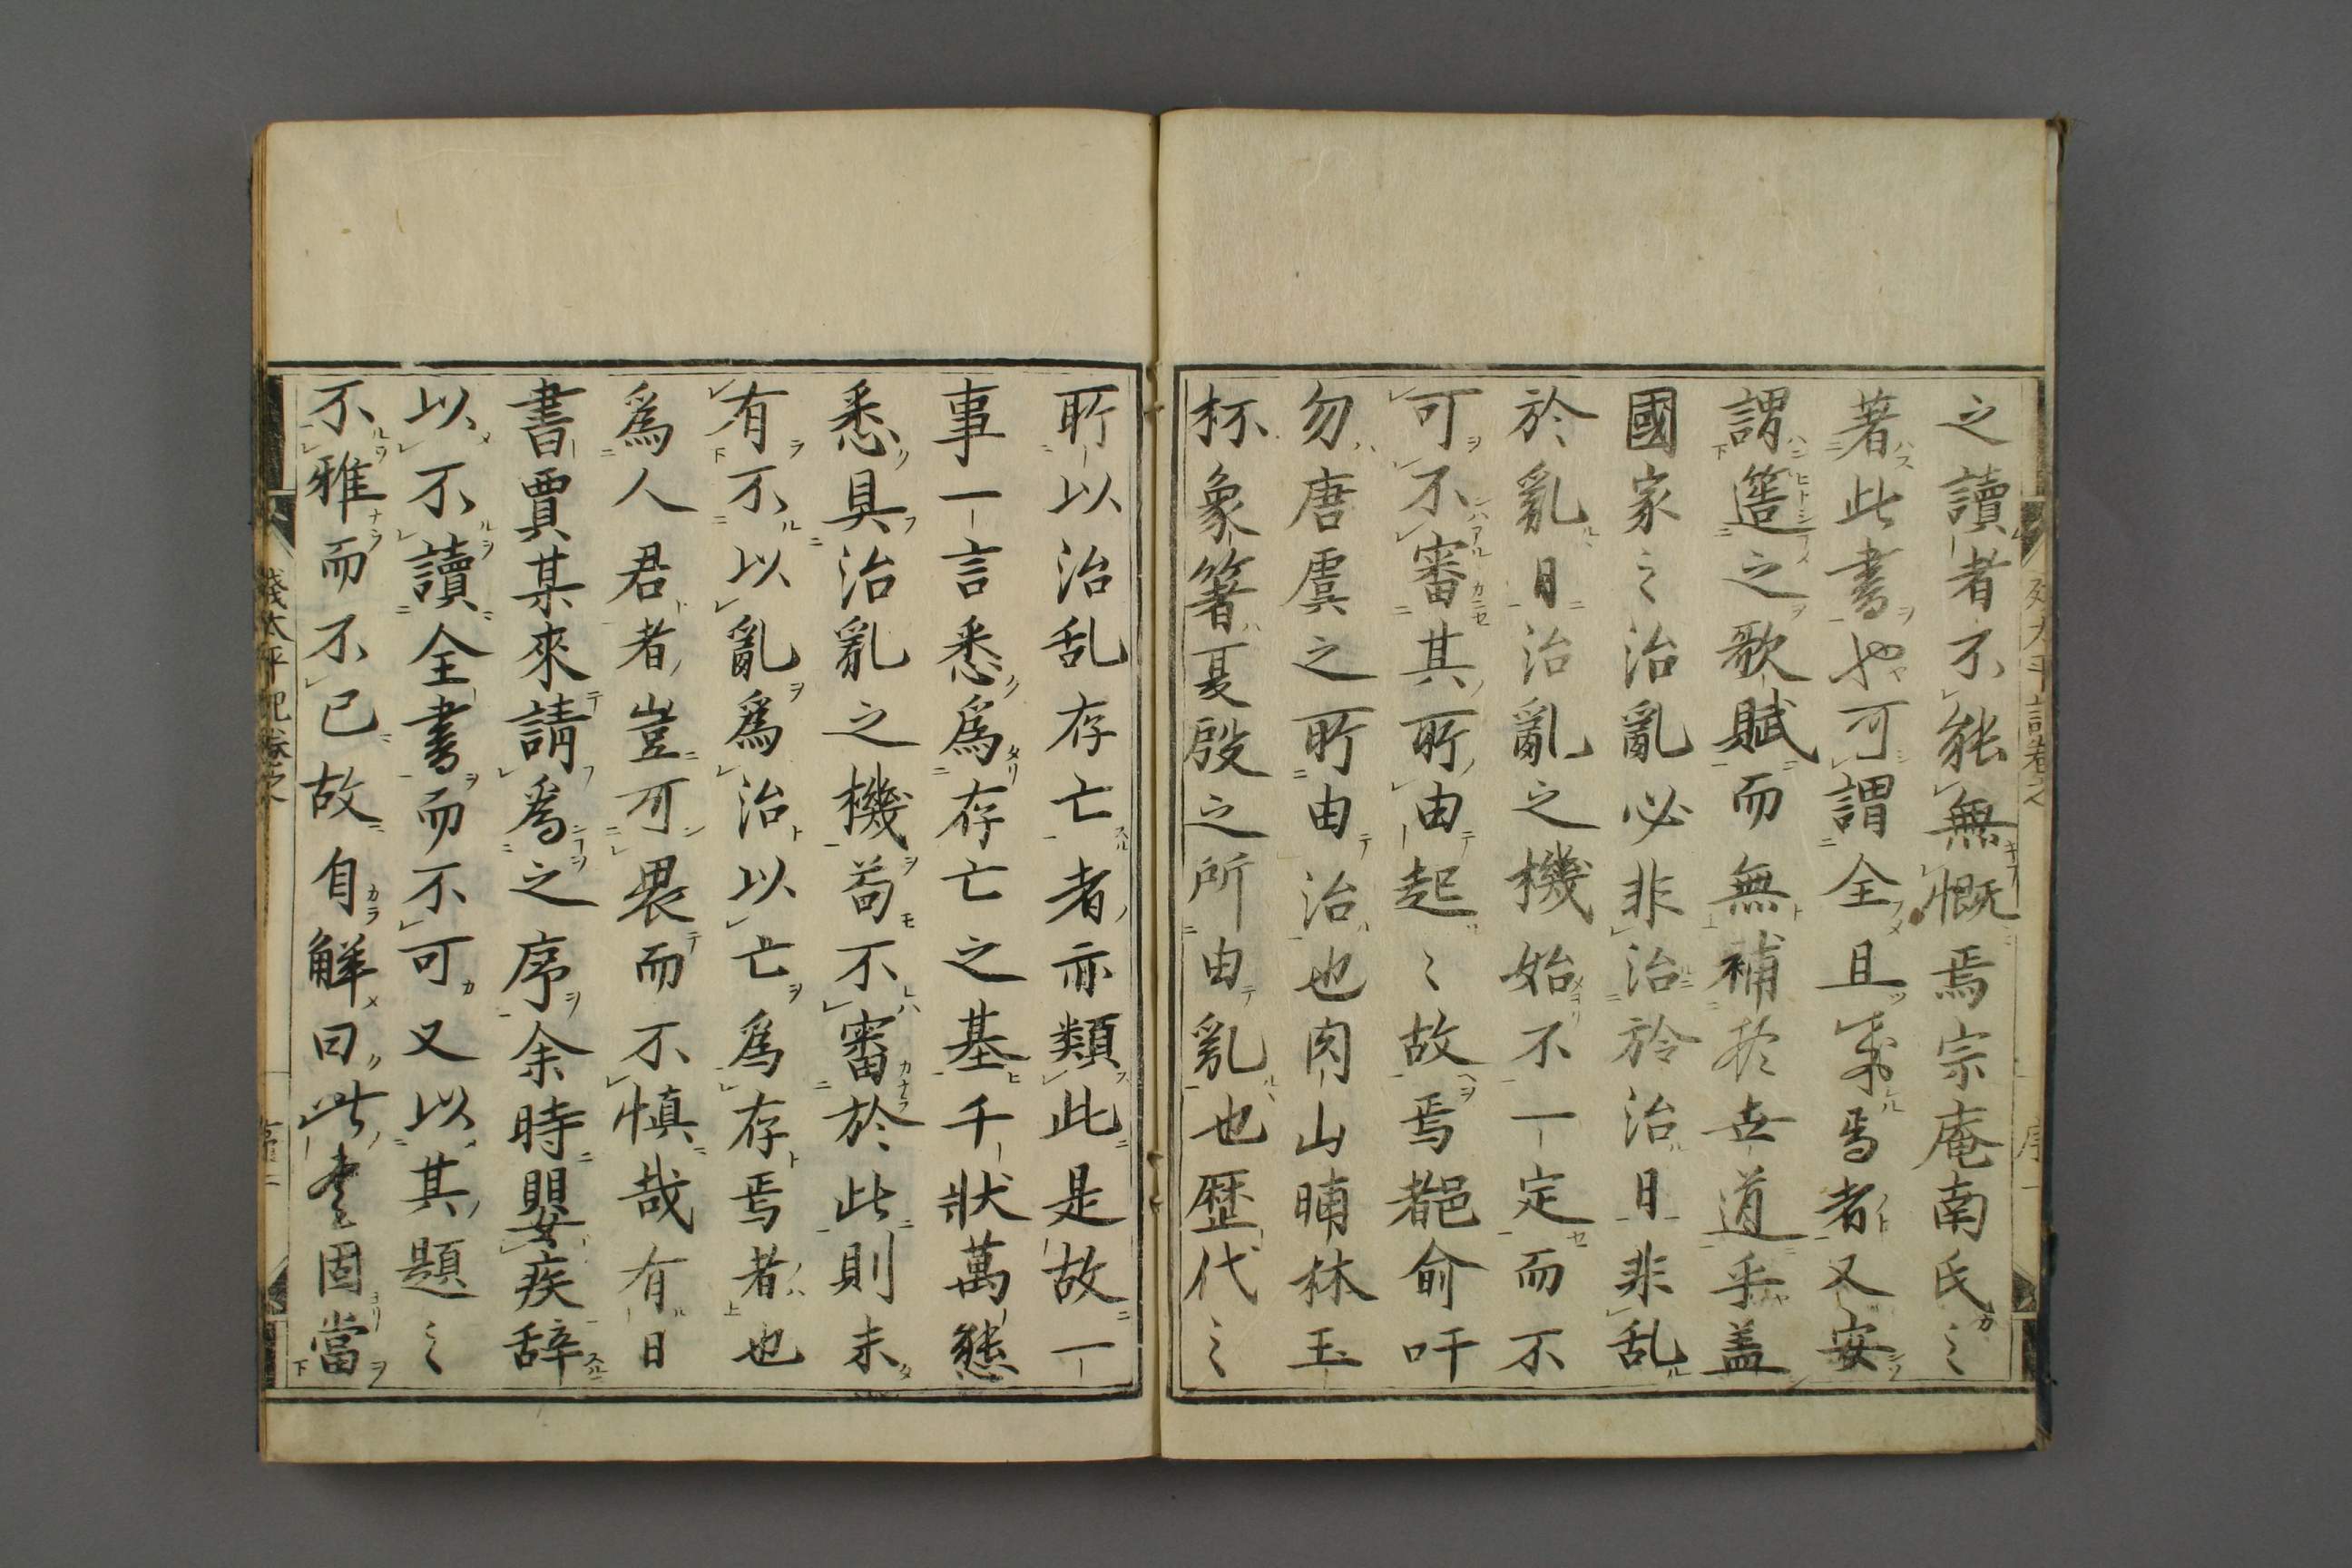 之讀者不能無慨焉宗庵南氏之
著此書也可謂全且备焉者又安
謂簉之歌賦而無補於世道乎盖
國家之治亂必非治於治日非乱
於亂日治亂之機始不一定而不
可不審其所由起〻故焉都俞吁
勿唐虞之所由治也肉山脯林玉
杯象箸夏殷之所由乱也歷代之
所以治乱存亡者亦類此是故一
事一言悉爲存亡之基千狀萬態
悉具治亂之機苟不審於此則未
有不以亂爲治以亡爲存焉者也
爲人君者豈可畏而不慎哉有日
書賈某來請爲之序余時嬰疾辞
以不讀全書而不可又以其題之
不雅而不已故自解曰此書固當